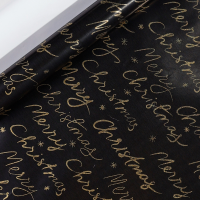 Merry Christmas
Merry Christmas
Merry Christmas
Merry Christmas
Merry Christmas
Merry Christmas
Merry Christmas
Merry Christmas
Merry Christmas